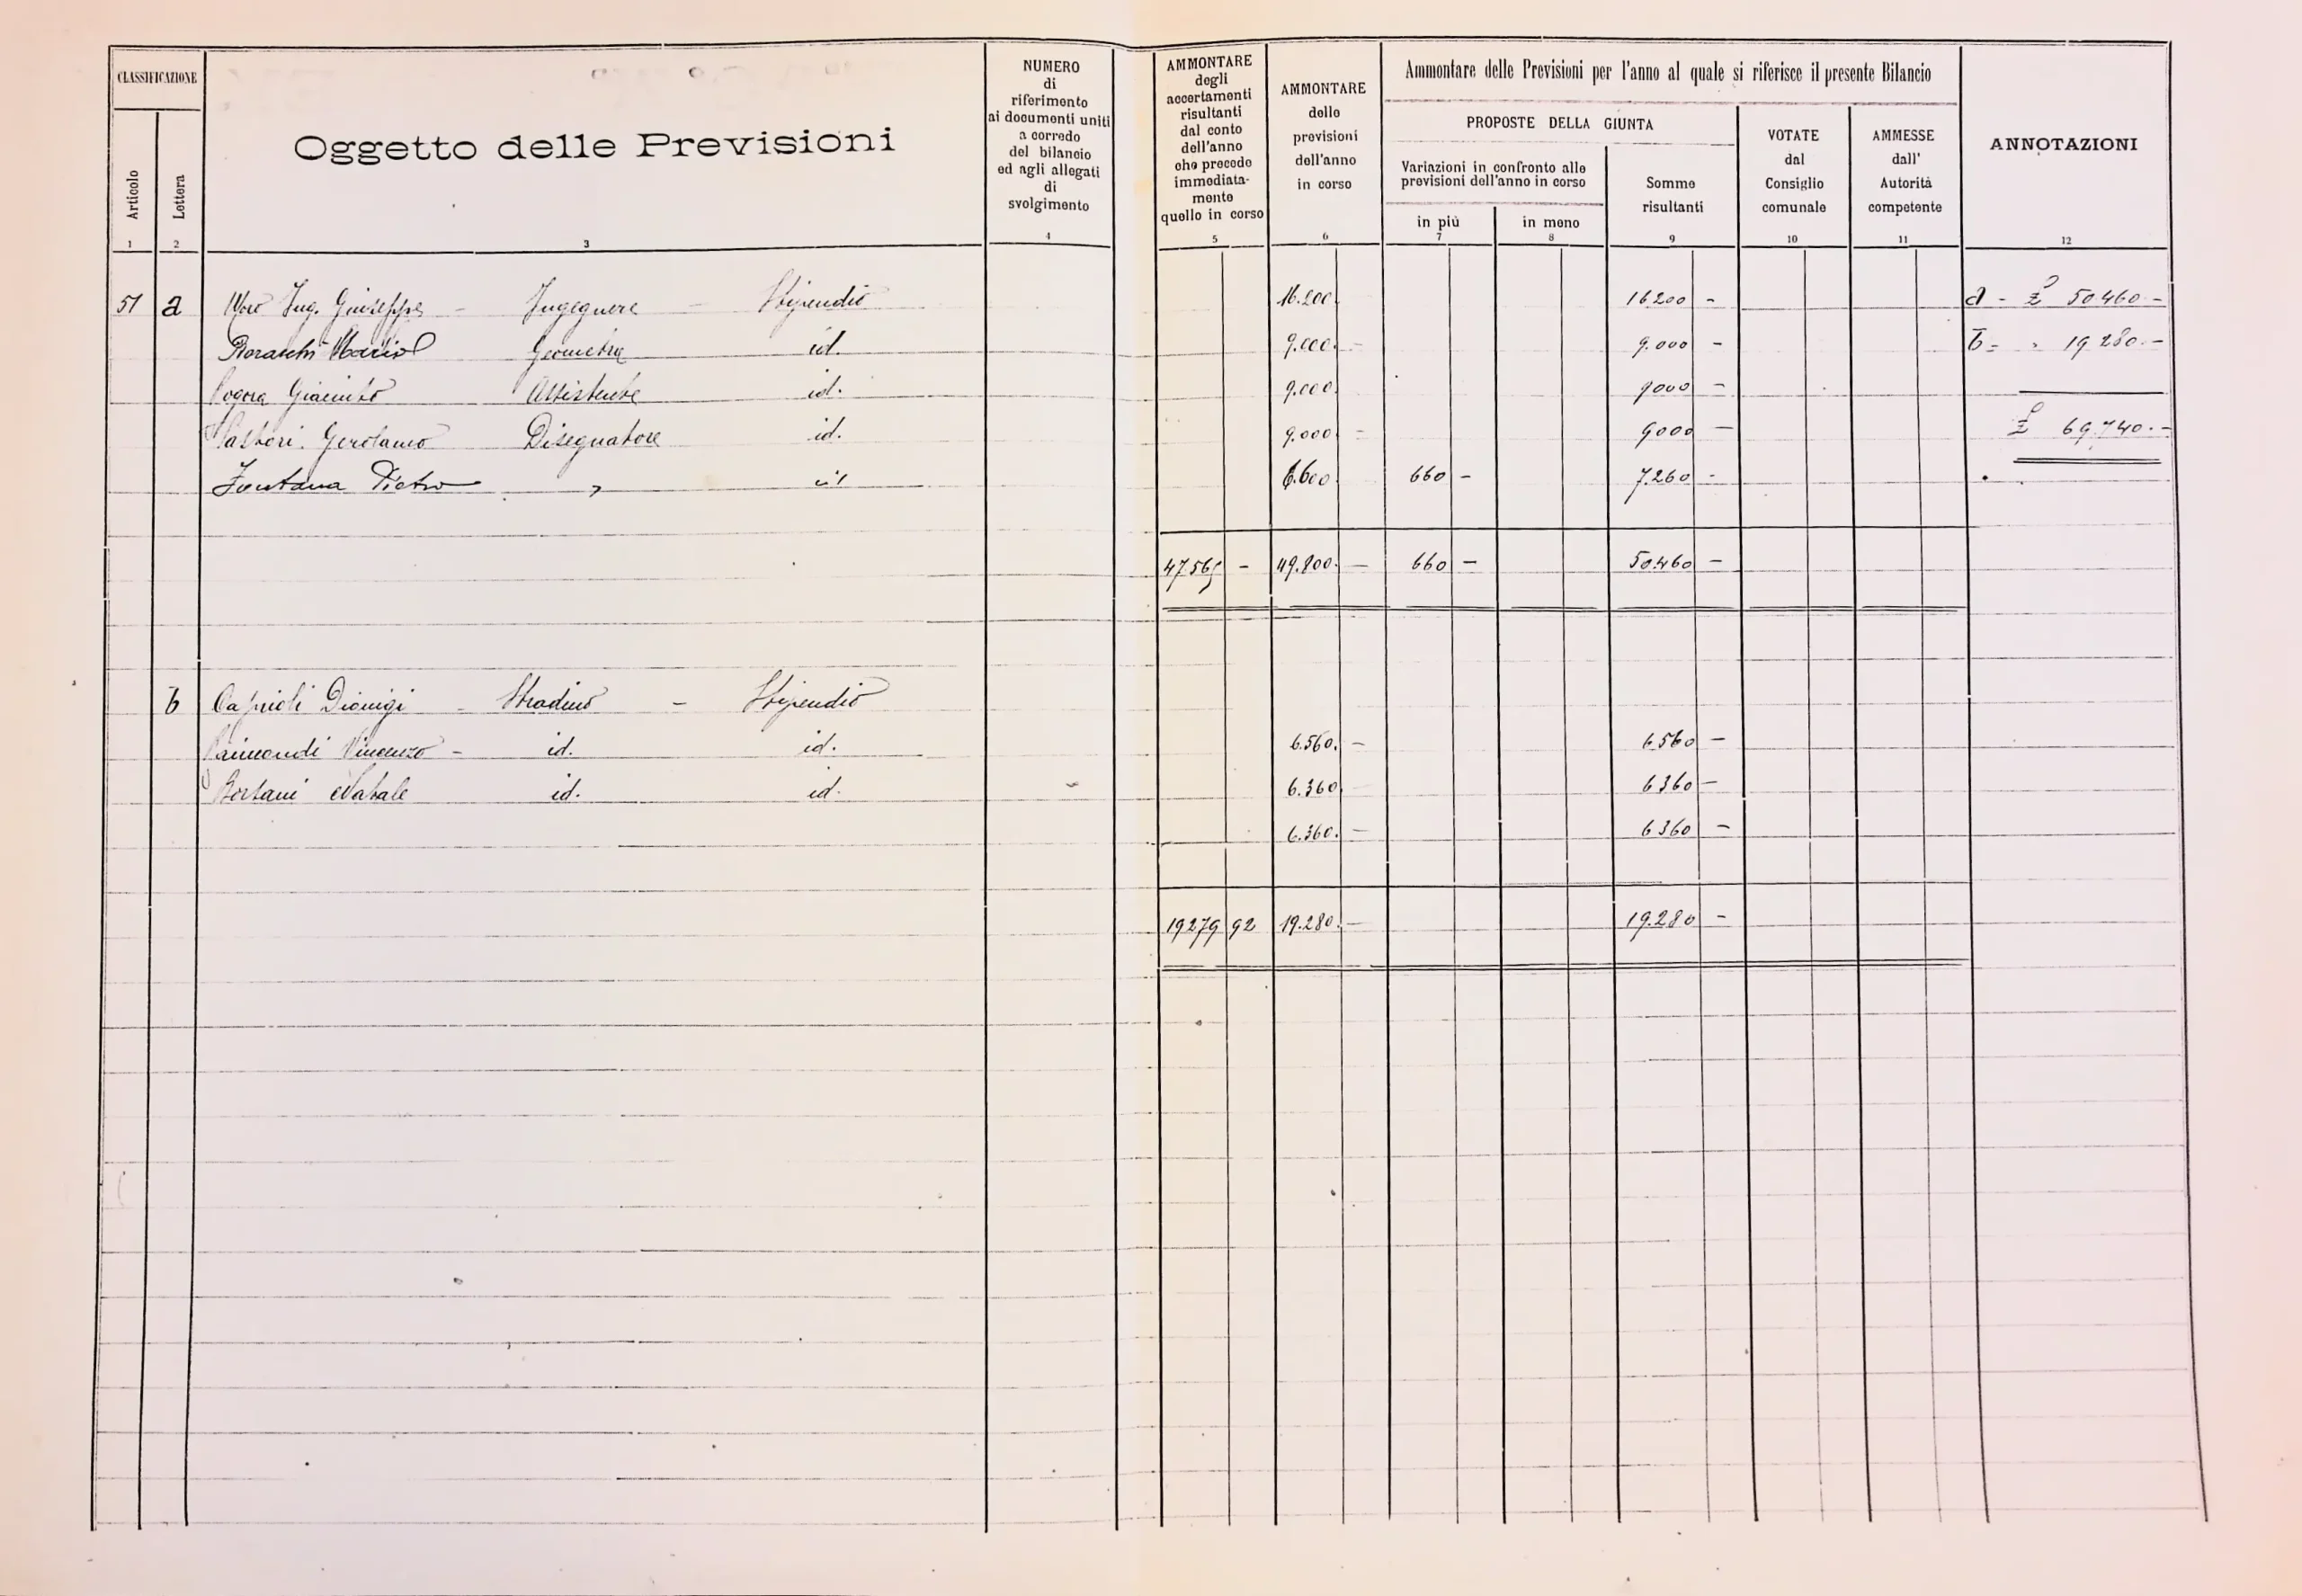 CLASSIFICAZIONE
Articolo
Lettera
Oggetto delle Previsioni
NUMERO
di
riferimento
ai documenti uniti
a corredo
del bilancio
ed agli allegati
di
svolgimento
AMMONTARE
degli
accertamenti
risultanti
dal conto
dell'anno
che precede
immediata-
mente
quello in corso
AMMONTARE
delle
previsioni
dell'anno
in corso
Ammontare delle Previsioni per l'anno al quale si riferisce il presente Bilancio
PROPOSTE DELLA GIUNTA
Variazioni in confronto alle
previsioni dell'anno in corso
in più
in meno
Somme
risultanti
VOTATE
dal
Consiglio
comunale
AMMESSE
dall'
Autorità
competente
ANNOTAZIONI
1 2 3 4 5 6 7 8 9 10 11 12
51 a Ing. Giuseppe - Ingegnere - Stipendio 16.200 16200 - a - £ 50460.-
Mario Geometra id. 9.000.- 9.000 - b - " 19280.-
Pogora Giacinto Assistente id. 9.000. 9000 -
Gerolamo Disegnatore id. 9.000 - 9000 - £ 69.740.-
Fontana Pietro " id 6.600 660 - 7.260 -
47565 - 49.800.- 660 - 50.460 -
b Caprioli Dionigi - Stradino - Stipendio
Raimondi Vincenzo - id. id. 6.560. - 6.560 -
Bortani Natale id. id. 6.360 6360 -
6.360. - 6360 -
19279 92 19.280.- 19.280 -